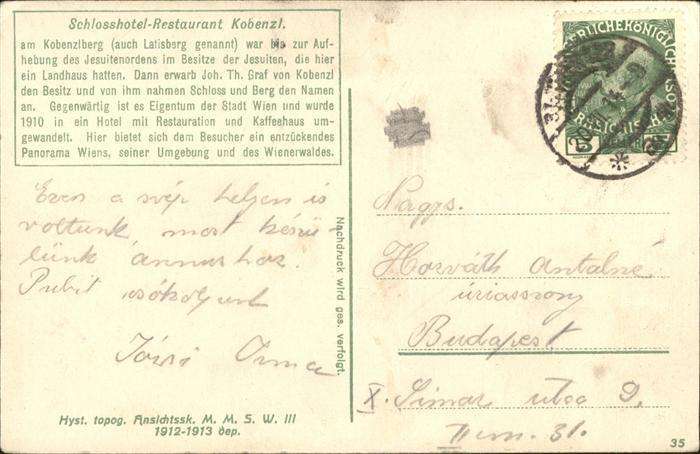 Schlosshotel-Restaurant Kobenzl.
am Kobenzlberg (auch Latisberg genannt) war bis zur Auf-
hebung des Jesuitenordens im Besitze der Jesuiten, die hier
ein Landhaus hatten. Dann erwarb Joh. Th. Graf von Kobenzl
den Besitz und von ihm nahmen Schloss und Berg den Namen
an. Gegenwärtig ist es Eigentum der Stadt Wien und wurde
1910 in ein Hotel mit Restauration und Kaffeehaus um-
gewandelt. Hier bietet sich dem Besucher ein entzückendes
Panorama Wiens, seiner Umgebung und des Wienerwaldes.
Ezen a szép helyen is
voltunk most készü-
lünk
Pubit csókoljuk
Irma
Nachdruck wird ges. verfolgt.
Hyst. topog. Ansichtssk. M. M. S. W. III
1912-1913 dep.
Nagys.
Horváth Antalné
úriasszony
Budapest
X. Simor utca 9.
II em. 31.
35